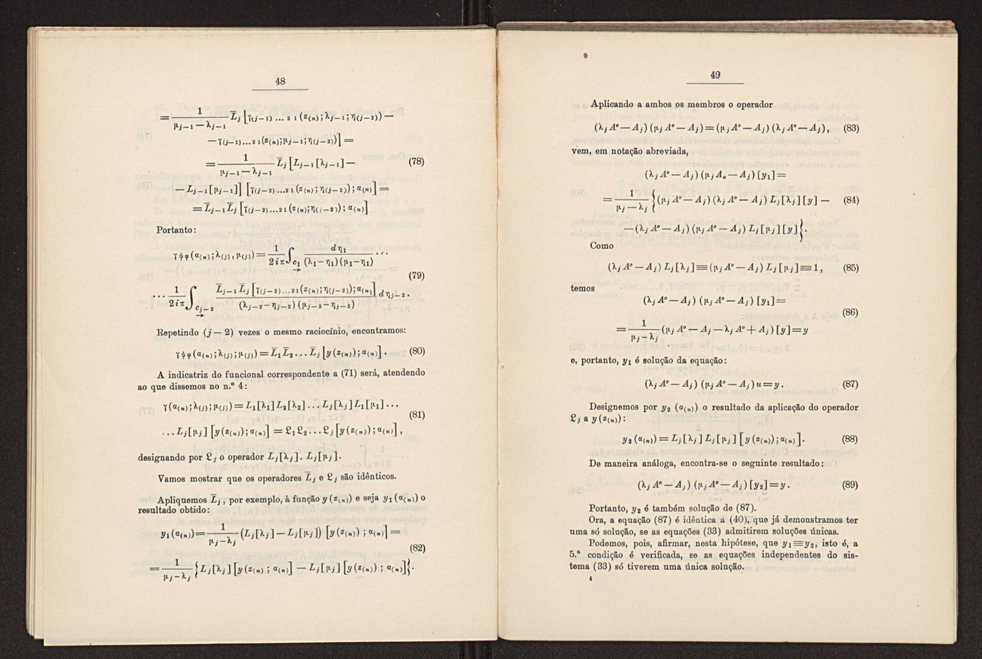 48
= 1/(μj−1 — λj−1) L̅j [γ(j−1) ... 2 1 (z(n); λj−1; η(j−2)) —
— γ(j−1)...2 1(z(n); μj−1; η(j−2))] =
= 1/(μj−1 — λj−1) L̅j [Lj−1 [λj−1] — (78)
— Lj−1 [μj−1]] [γ(j−2)...2 1 (z(n); η(j−2)); a(n)] =
= L̅j−1 L̅j [γ(j−2)...2 1 (z(n); η(j−2)); a(n)]
Portanto:
γψφ(a(n); λ(j), μ(j)) = 1/(2iπ) ∫c1 dη1/((λ1−η1)(μ1−η1)) ...
(79)
... 1/(2iπ) ∫cj−2 L̅j−1 L̅j [γ(j−2)...21(z(n); η(j−2)); a(n)]/((λj−2−ηj−2)(μj−2−ηj−2)) dηj−2.
Repetindo (j — 2) vezes o mesmo raciocínio, encontramos:
γψφ(a(n); λ(j); μ(j)) = L̅1 L̅2 ... L̅j [y(z(n)); a(n)]. (80)
A indicatriz do funcional correspondente a (71) será, atendendo
ao que dissemos no n.º 4:
γ(a(n); λ(j); μ(j)) = L1[λ1] L2[λ2] ... Lj[λj] L1[μ1] ...
(81)
... Lj[μj] [y(z(n)); a(n)] = 𝔏1 𝔏2 ... 𝔏j [y(z(n)); a(n)],
designando por 𝔏j o operador Lj[λj]. Lj[μj].
Vamos mostrar que os operadores L̅j e 𝔏j são idênticos.
Apliquemos L̅j, por exemplo, à função y(z(n)) e seja y1(a(n)) o
resultado obtido:
y1(a(n)) = 1/(μj−λj) (Lj[λj] — Lj[μj]) [y(z(n)); a(n)] =
(82)
= 1/(μj−λj) {Lj[λj] [y(z(n)); a(n)] — Lj[μj] [y(z(n)); a(n)]}.
49
Aplicando a ambos os membros o operador
(λj Aº — Aj) (μj Aº — Aj) = (μj Aº — Aj) (λj Aº — Aj), (83)
vem, em notação abreviada,
(λj Aº — Aj) (μj Aₒ — Aj) [y1] =
= 1/(μj — λj) {(μj Aº — Aj) (λj Aº — Aj) Lj[λj] [y] — (84)
— (λj Aº — Aj) (μj Aº — Aj) Lj[μj] [y]}.
Como
(λj Aº — Aj) Lj[λj] ≡ (μj Aº — Aj) Lj[μj] ≡ 1, (85)
temos
(λj Aº — Aj) (μj Aº — Aj) [y1] =
(86)
= 1/(μj−λj) (μj Aº — Aj — λj Aº + Aj) [y] = y
e, portanto, y1 é solução da equação:
(λj Aº — Aj) (μj Aº — Aj) u = y. (87)
Designemos por y2 (a(n)) o resultado da aplicação do operador
𝔏j a y(z(n)):
y2(a(n)) = Lj[λj] Lj[μj] [y(z(n)); a(n)]. (88)
De maneira análoga, encontra-se o seguinte resultado:
(λj Aº — Aj) (μj Aº — Aj) [y2] = y. (89)
Portanto, y2 é também solução de (87).
Ora, a equação (87) é idêntica à (40), que já demonstramos ter
uma só solução, se as equações (33) admitirem soluções únicas.
Podemos, pois, afirmar, nesta hipótese, que y1 ≡ y2, isto é, a
5.ª condição é verificada, se as equações independentes do sis-
tema (33) só tiverem uma única solução.
4